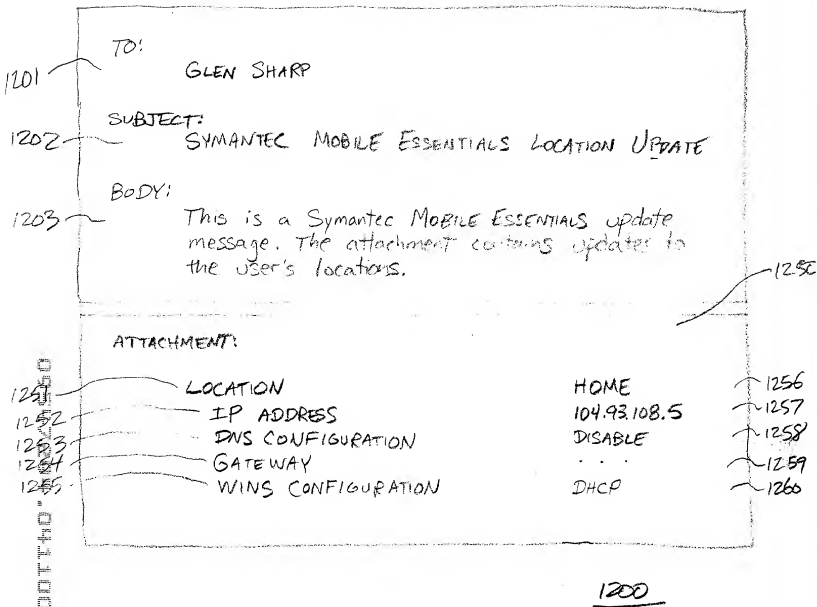 TO:
1201 GLEN SHARP
SUBJECT:
1202 SYMANTEC MOBILE ESSENTIALS LOCATION UPDATE
BODY:
1203 This is a Symantec MOBILE ESSENTIALS update
message. The attachment contains updates to
the user's locations.
1250
ATTACHMENT:
1251 LOCATION HOME 1256
1252 IP ADDRESS 104.93.108.5 1257
1253 DNS CONFIGURATION DISABLE 1258
1254 GATEWAY . . . 1259
1255 WINS CONFIGURATION DHCP 1260
1200